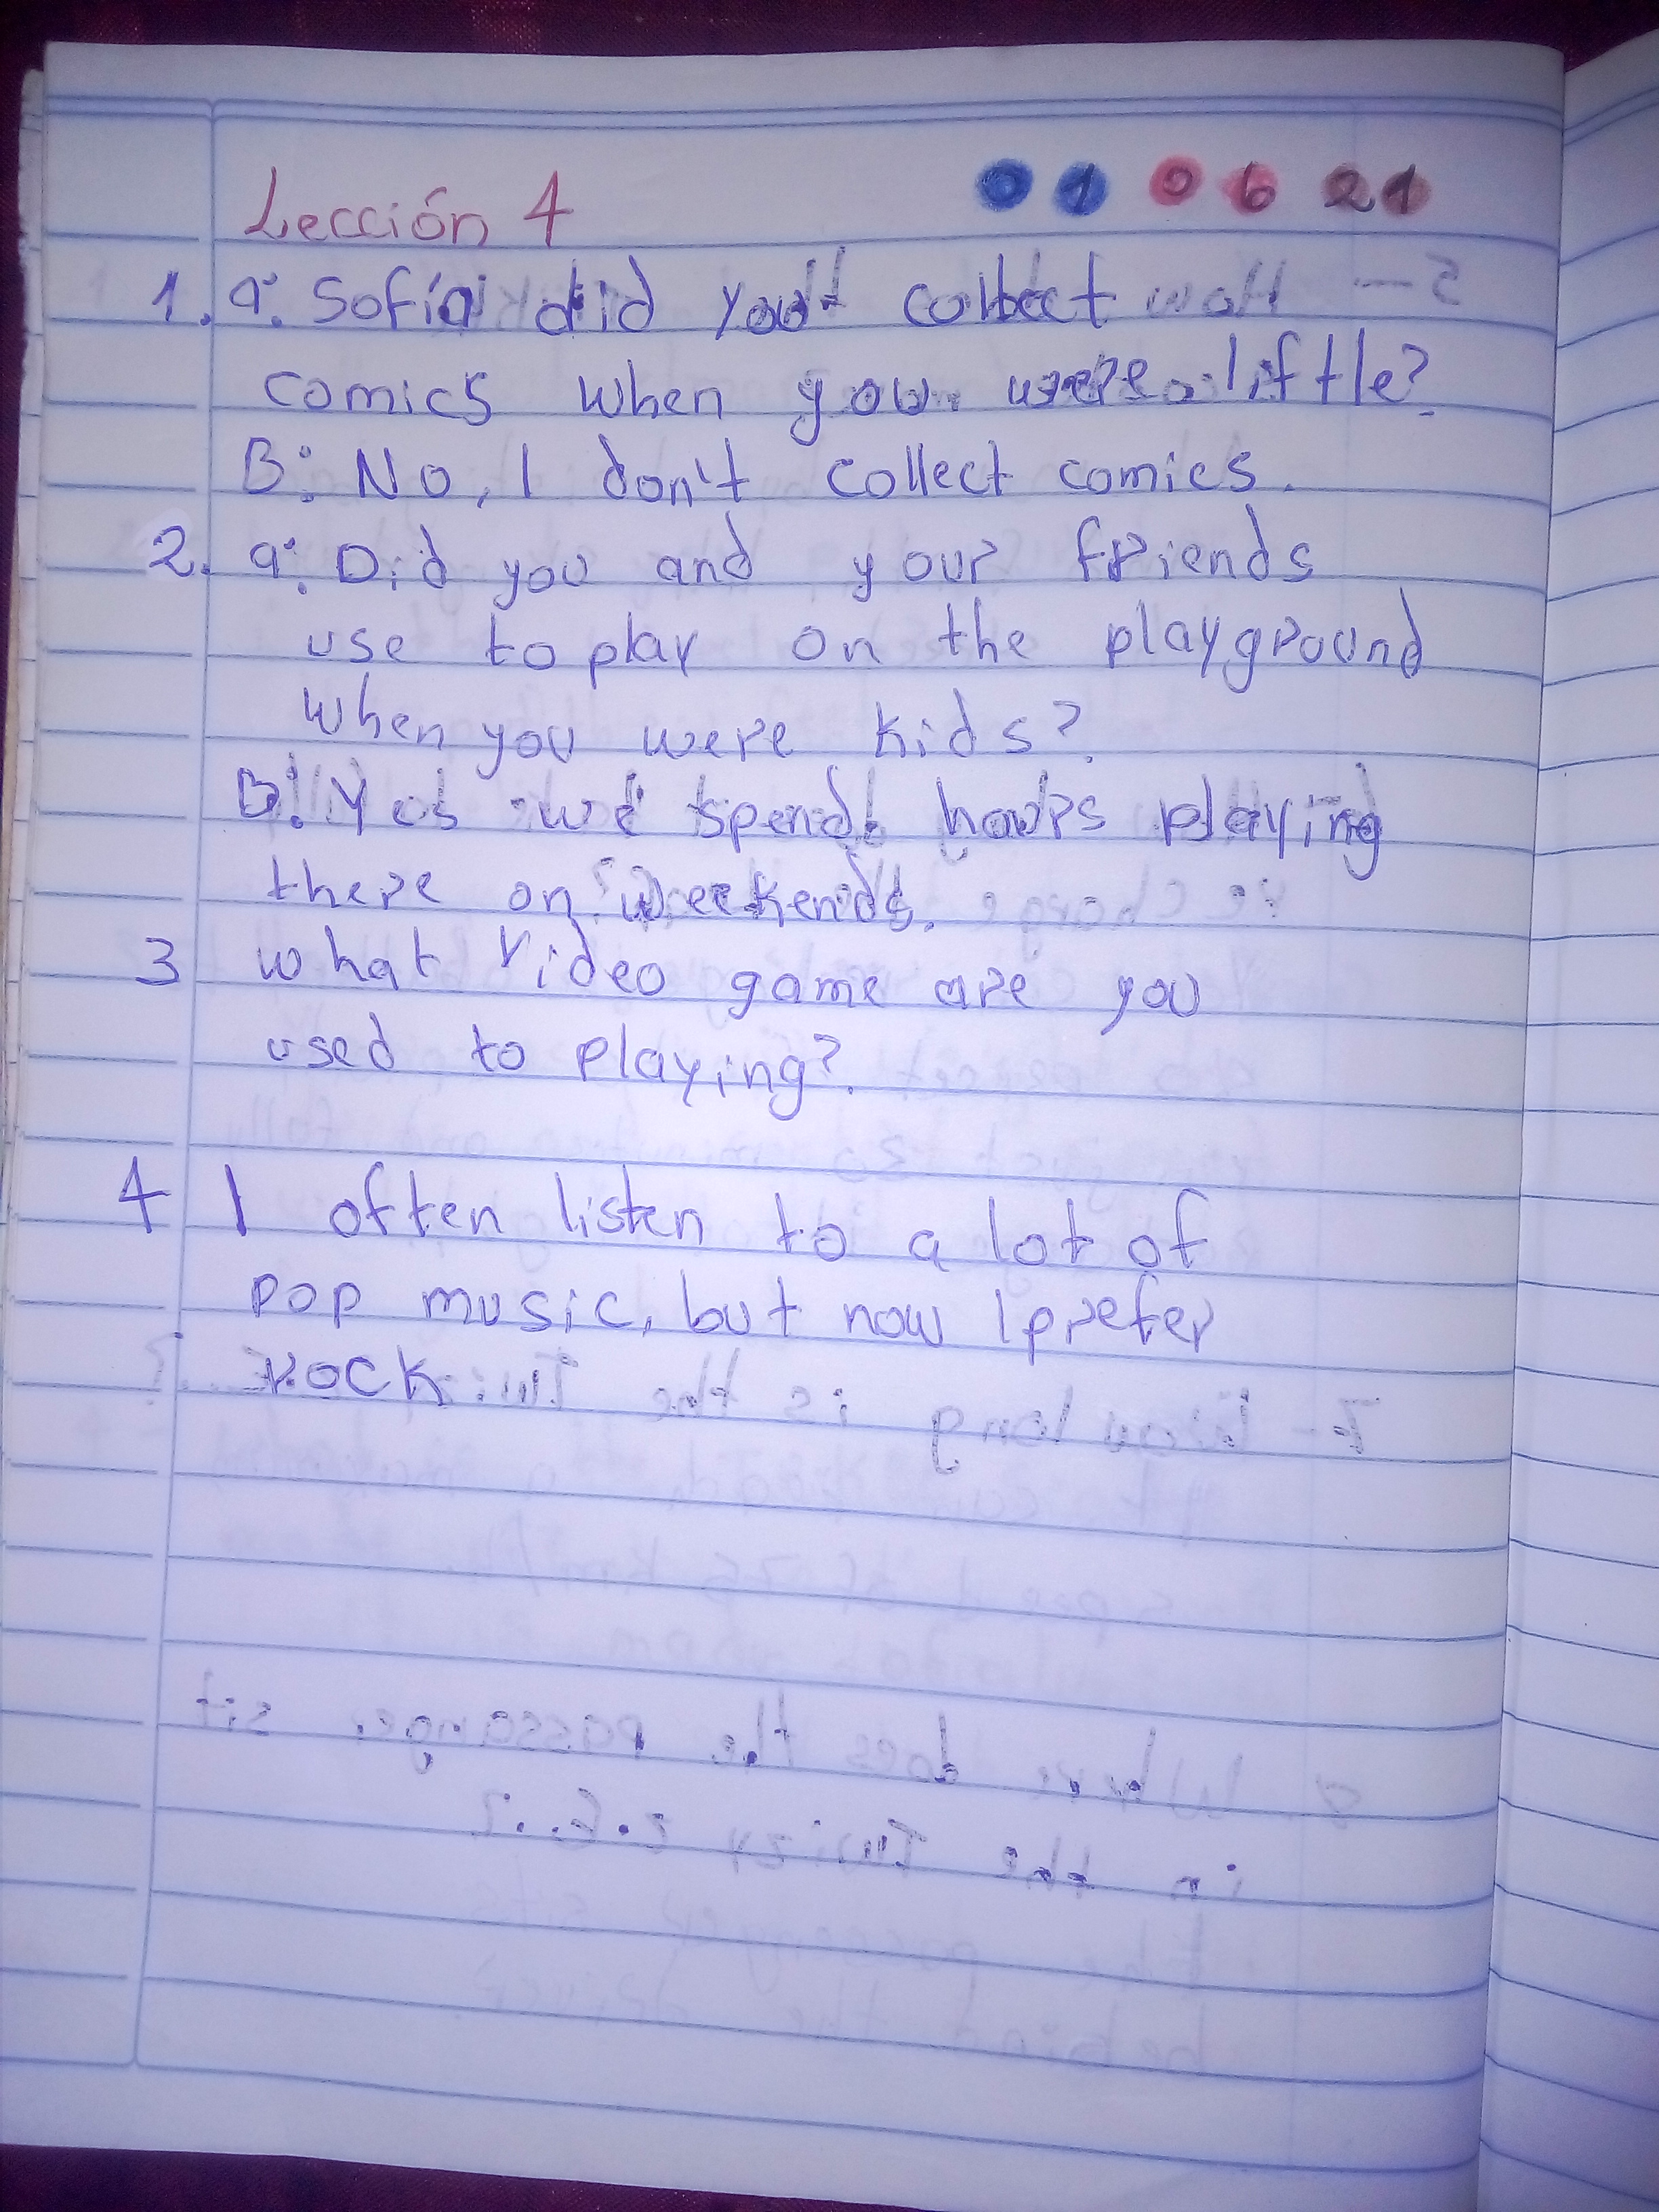 Lección 4 01 06 21
1. a: Sofía did you collect
comics when you were little?
B: No, I don't collect comics.
2. a: Did you and your friends
use to play on the playground
when you were kids?
B: Yes we spend hours playing
there on weekends.
3 what video game are you
used to playing?.
4 I often listen to a lot of
pop music, but now I prefer
rock